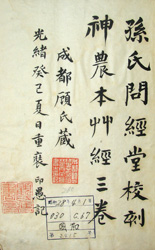 孫氏問經堂校刻
神農本艸經三卷
成都顧氏藏
光緒癸巳夏日重裝印愚記